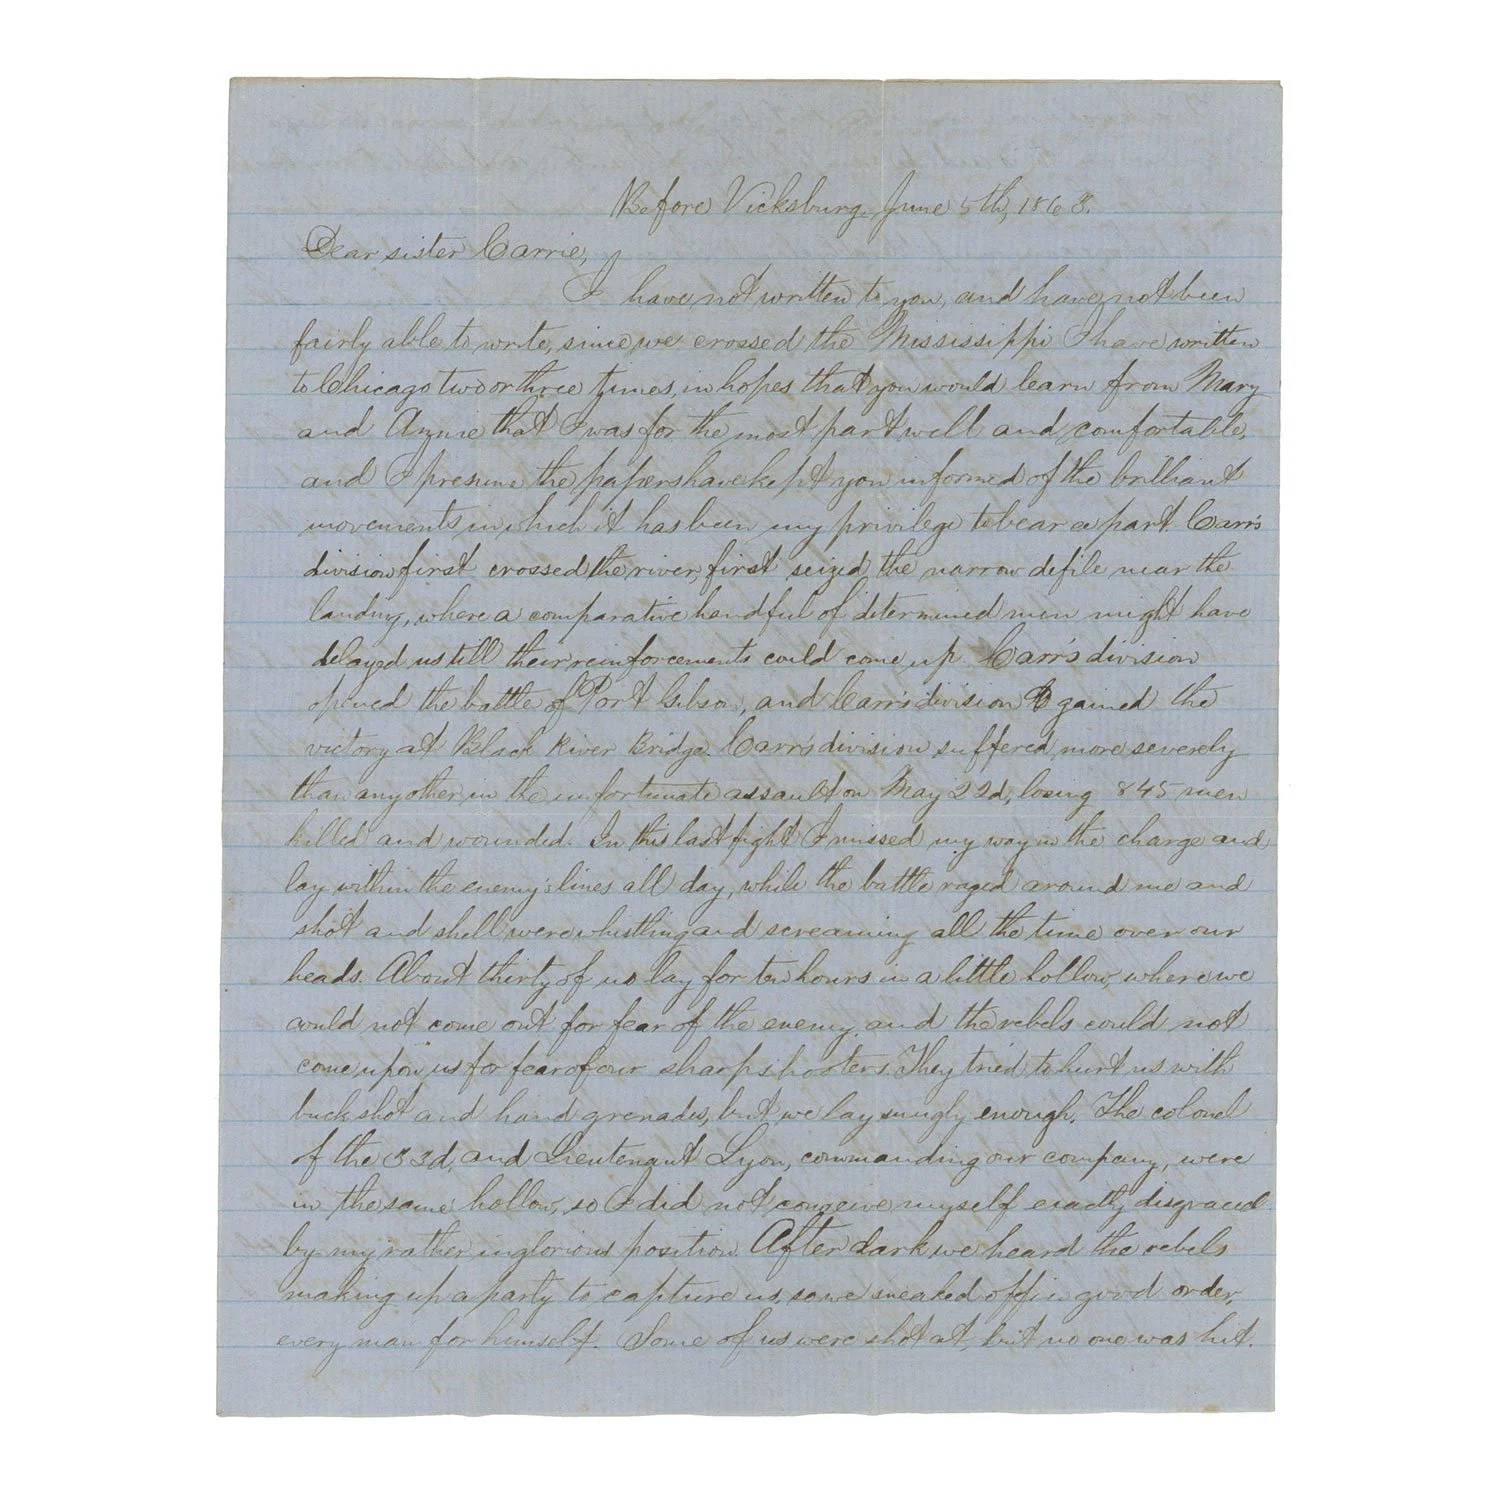 Before Vicksburg, June 5th, 1863.
Dear sister Carrie,
I have not written to you, and have not been
fairly able to write, since we crossed the Mississippi I have written
to Chicago two or three times, in hopes that you would learn from Mary
and that I was for the most part well and comfortable,
and I presume the papers have kept you informed of the brilliant
movements in which it has been my privilege to bear a part. Carr's
division first crossed the river, first seized the narrow defile near the
landing, where a comparative handful of determined men might have
delayed us till their reinforcements could come up. Carr's division
opened the battle of Port Gibson, and Carr's division gained the
victory at Black River Bridge. Carr's division suffered more severely
than any other in the unfortunate assault on May 22d, losing 845 men
killed and wounded. In this last fight I missed my way in the charge and
lay within the enemy's lines all day, while the battle raged around me and
shot and shell were whistling and screaming all the time over our
heads. About thirty of us lay for ten hours in a little hollow, where we
could not come out for fear of the enemy, and the rebels could not
come upon us for fear of our sharpshooters. They tried to hurt us with
buckshot and hand grenades, but we lay snugly enough. The colonel
of the 33d, and Lieutenant Lyon, commanding our company, were
in the same hollow, so I did not conceive myself exactly disgraced
by my rather inglorious position. After dark we heard the rebels
making up a party to capture us, so we sneaked off in good order,
every man for himself. Some of us were shot at, but no one was hit.